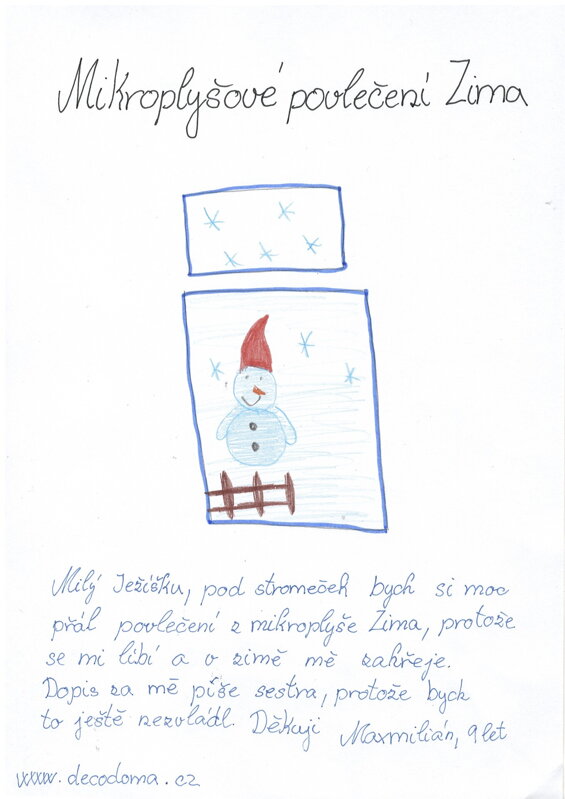 Mikroplyšové povlečení Zima
Milý Ježíšku, pod stromeček bych si moc
přál povlečení z mikroplyše Zima, protože
se mi líbí a v zimě mě zahřeje.
Dopis za mě píše sestra, protože bych
to ještě nezvládl. Děkuji Maxmilián, 9 let
www.decodoma.cz